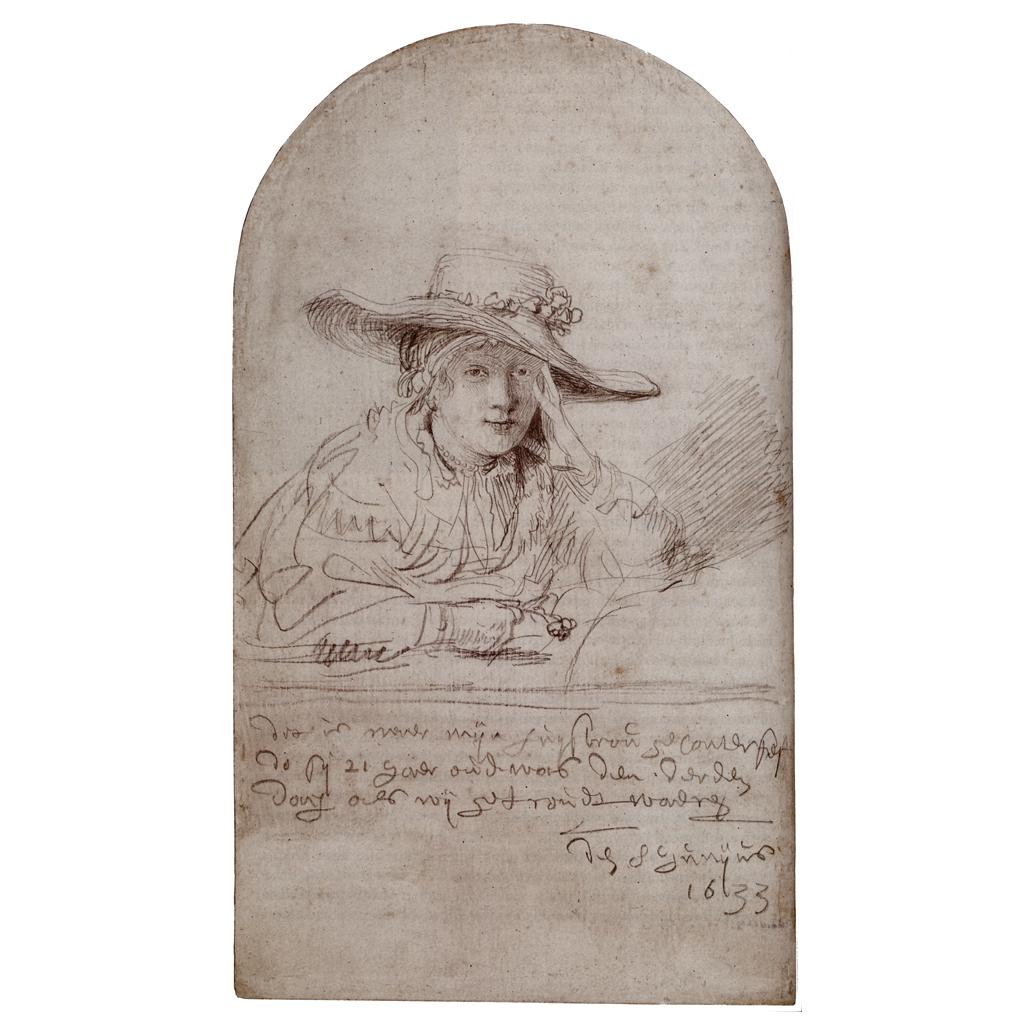 dit is naer mijn huysvrou geconterfeit
do sij 21 jaer oud was den derden
dach als wij getroudt waeren
den 8 junijus
1633